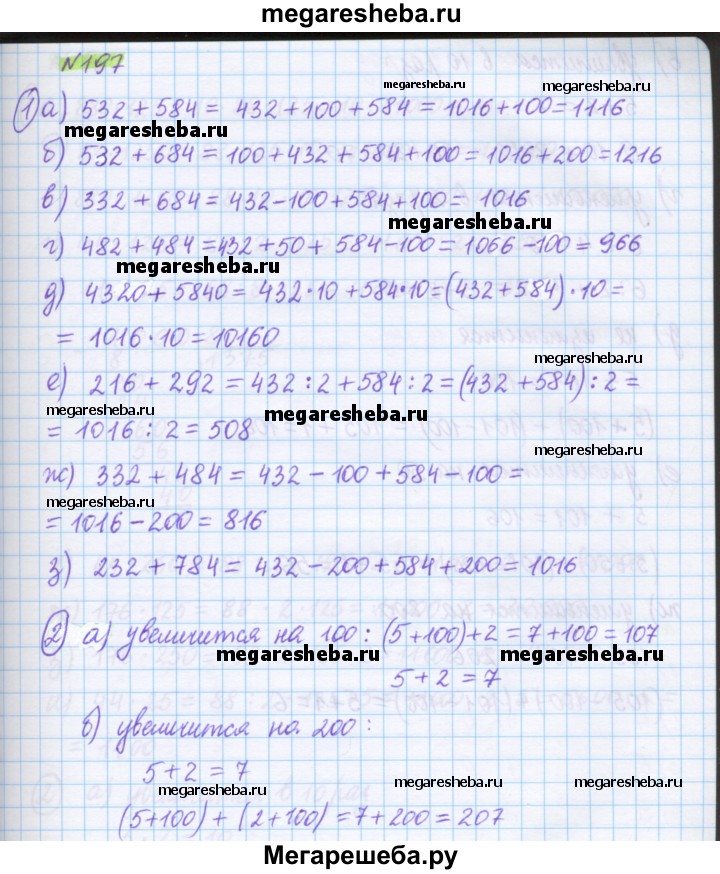 megaresheba.ru
№197
megaresheba.ru megaresheba.ru
1) а) 532 + 584 = 432 + 100 + 584 = 1016 + 100 = 1116
megaresheba.ru megaresheba.ru
б) 532 + 684 = 100 + 432 + 584 + 100 = 1016 + 200 = 1216
в) 332 + 684 = 432 - 100 + 584 + 100 = 1016
megaresheba.ru
г) 482 + 484 = 432 + 50 + 584 - 100 = 1066 - 100 = 966
megaresheba.ru
д) 4320 + 5840 = 432 · 10 + 584 · 10 = (432 + 584) · 10 =
= 1016 · 10 = 10160
megaresheba.ru
е) 216 + 292 = 432 : 2 + 584 : 2 = (432 + 584) : 2 =
megaresheba.ru megaresheba.ru
= 1016 : 2 = 508
megaresheba.ru
ж) 332 + 484 = 432 - 100 + 584 - 100 =
megaresheba.ru megaresheba.ru
= 1016 - 200 = 816
з) 232 + 784 = 432 - 200 + 584 + 200 = 1016
2) а) увеличится на 100 : (5 + 100) + 2 = 7 + 100 = 107
megaresheba.ru megaresheba.ru
5 + 2 = 7
б) увеличится на 200 :
5 + 2 = 7
megaresheba.ru megaresheba.ru megaresheba.ru
(5 + 100) + (2 + 100) = 7 + 200 = 207
Мегарешеба.ру